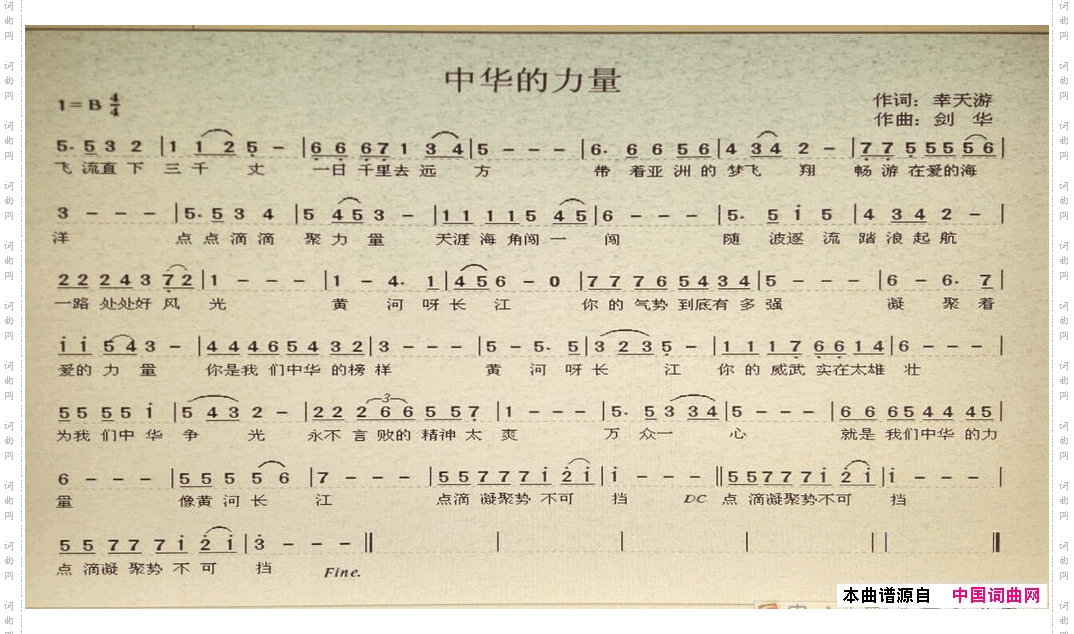 中华的力量
1=B 4/4
作词：幸天游
作曲：剑 华
5. 5 3 2 | 1 1 2 5 - | 6 6 6 7 1 3 4 | 5 - - - | 6. 6 6 5 6 | 4 3 4 2 - | 7 7 5 5 5 5 6 |
飞 流直 下 三 千 丈 一日 千里去 远 方 带 着亚 洲 的 梦飞 翔 畅 游 在爱的海
3 - - - | 5. 5 3 4 | 5 4 5 3 - | 1 1 1 1 5 4 5 | 6 - - - | 5. 5 i 5 | 4 3 4 2 - |
洋 点 点 滴 滴 聚 力 量 天涯 海 角闯 一 闯 随 波逐 流 踏 浪 起 航
2 2 2 2 4 3 7 2 | 1 - - - | 1 - 4. 1 | 4 5 6 - 0 | 7 7 7 6 5 4 3 4 | 5 - - - | 6 - 6. 7 |
一路 处处好 风 光 黄 河 呀 长 江 你 的 气势 到底有 多 强 凝 聚 着
i i 5 4 3 - | 4 4 4 6 5 4 3 2 | 3 - - - | 5 - 5. 5 | 3 2 3 5 - | 1 1 1 7 6 6 1 4 | 6 - - - |
爱的 力 量 你是我 们中华 的榜 样 黄 河 呀 长 江 你 的 威武 实在太雄 壮
5 5 5 5 i | 5 4 3 2 - | 2 2 2 6 6 5 5 7 | 1 - - - | 5. 5 3 3 4 | 5 - - - | 6 6 6 5 4 4 4 5 |
为我 们中 华 争 光 永不 言 败的 精神 太 爽 万 众一 心 就是 我们中华 的力
6 - - - | 5 5 5 5 6 | 7 - - - | 5 5 7 7 7 i 2 i | i - - - || 5 5 7 7 7 i 2 i | i - - - |
量 像黄 河 长 江 点滴 凝聚势 不可 挡 D.C. 点 滴凝聚势不可 挡
5 5 7 7 7 i 2 i | 3 - - - ||
点 滴凝 聚势 不 可 挡 Fine.
本曲谱源自 中国词曲网